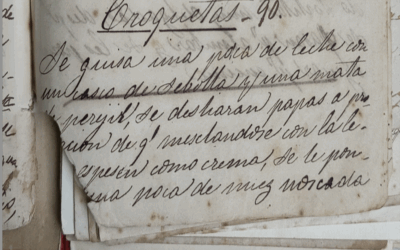 Croquetas - 90.
Se guisa una poca de leche con
un casio de Sebolla y una mata
perejil, se desharan papas a pro
cion de q' mesclandose con la le-
espesen como crema, se le pon-
una poca de nuez noscada